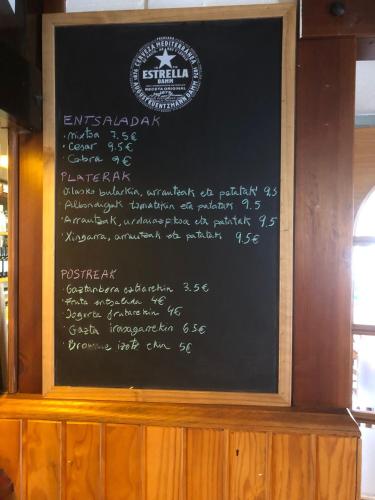 CERVEZA MEDITERRÁNEA
1876
ESTRELLA
DAMM
RECETA ORIGINAL
AUGUST KUENTZMANN DAMM
ENTSALADAK
· Mixtoa 7.5€
· Cesar 9.5€
· Cabra 9€
PLATERAK
Oilasko bularkin, arrautzak eta patatak 9,5
· Albondigak tomatekin eta patatak 9.5
· Arrautzak, urdaiazpikoa eta patatak 9.5
· Xingarra, arrautzak eta patatak 9,5€
POSTREAK
· Gaztanbera eztiarekin 3.5€
· Fruta entsalada 4€
· Jogurta frutarekin 4€
· Gazta irasagarrekin 6.5€
· Brownie izotz 5€